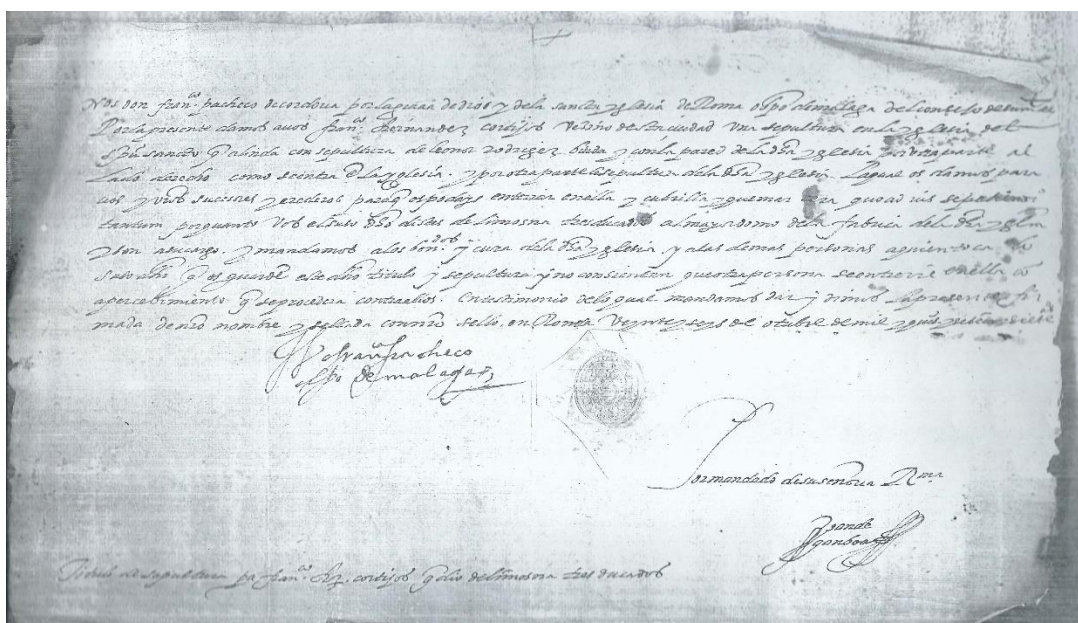 Nos don fran.co pacheco de cordoua por la graçia de dios y de la sancta yglesia de Roma obpo de malaga del consejo de su m.
Por la presente damos auos fran.co Hernandez cortijos vezino desta ciudad una sepultura en la yglesia del
spu sancto q alinda con sepultura de leonor rodrigez biuda y con la pared de la dha yglesia por otra parte al
lado derecho como se entra e la yglesia. y por otra parte sepultura de la dha yglesia. la qual os damos para
uos y vros sucesores y erederos para q os podays enterrar en ella y cubrilla y quoad ius sepeliendi
tantum por quanto vos el suso dho distes de limosna tres ducados al mayordomo de la fabrica de la dha yglia
y son a su cargo. y mandamos a los ben.dos y cura de la dha yglesia y a las demas personas a quien toca
q os guarde este dho titulo y sepultura y no consientan que otra persona se entierre en ella co
apercebimiento q se procedera contra ellos. En testimonio de lo qual mandamos dar y dimos la presente fir
mada de nro nombre y sellada con nro sello. en Ronda veynte y seys de otubre de mil y quis y setenta y siete
fran.co pacheco
obpo de malaga
Por mandado de su señoria Rma
Juan de
ganboa
Titulo de sepultura pa fran.co hrz. cortijos q dio de limosna tres ducados